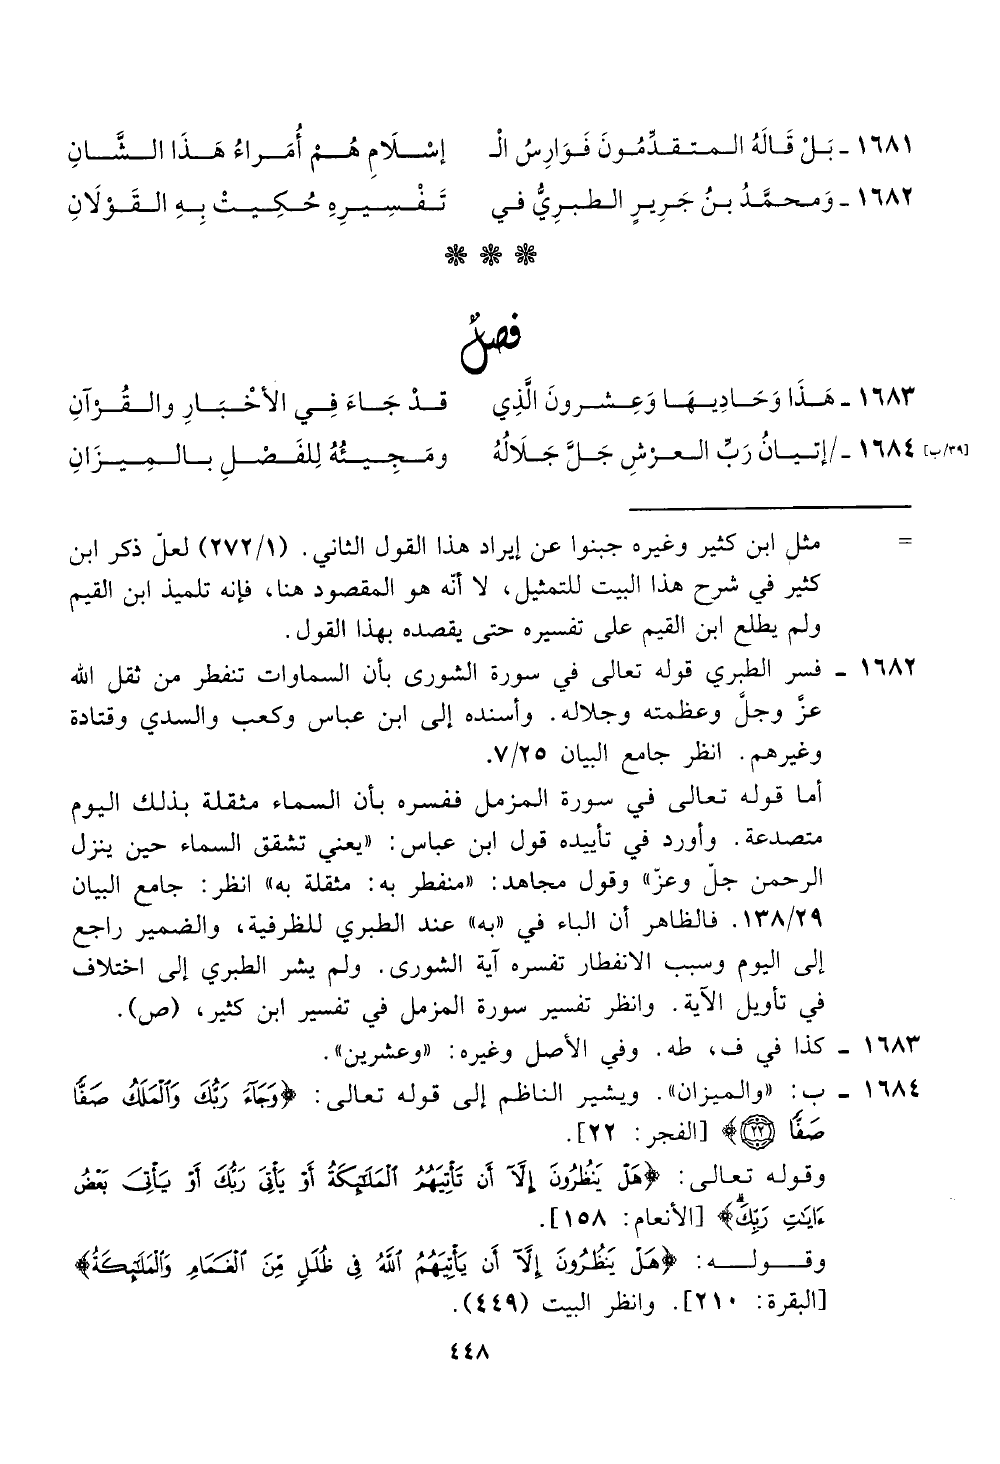 ١٦٨١ ـ بَلْ قَالَهُ المتقدِّمُونَ فَوَارِسُ الْـ إسْلَامِ هُمْ أُمَرَاءُ هَذَا الشَّانِ
١٦٨٢ ـ وَمحمَّدُ بنُ جَرِيرٍ الطبريُّ في تَفْسِيرِهِ حُكِيَتْ بِهِ القَوْلَانِ
* * *
فصلٌ
١٦٨٣ ـ هَذَا وَحَادِيهَا وَعِشرونَ الَّذِي قدْ جَاءَ فِي الأخْبَارِ والقُرْآنِ
[٣٩/ب] ١٦٨٤ ـ /إتيانُ رَبِّ العرْشِ جَلَّ جَلَالُهُ ومَجِيئُهُ لِلفَصْلِ بالمِيزَانِ
= مثل ابن كثير وغيره جبنوا عن إيراد هذا القول الثاني. (٢٧٢/١) لعلّ ذكر ابن
كثير في شرح هذا البيت للتمثيل، لا أنّه هو المقصود هنا، فإنه تلميذ ابن القيم
ولم يطلع ابن القيم على تفسيره حتى يقصده بهذا القول.
١٦٨٢ ـ فسر الطبري قوله تعالى في سورة الشورى بأن السماوات تنفطر من ثقل الله
عزَّ وجلَّ وعظمته وجلاله. وأسنده إلى ابن عباس وكعب والسدي وقتادة
وغيرهم. انظر جامع البيان ٧/٢٥.
أما قوله تعالى في سورة المزمل ففسره بأن السماء مثقلة بذلك اليوم
متصدعة. وأورد في تأييده قول ابن عباس: «يعني تشقق السماء حين ينزل
الرحمن جلّ وعزّ» وقول مجاهد: «منفطر به: مثقلة به» انظر: جامع البيان
١٣٨/٢٩. فالظاهر أن الباء في «به» عند الطبري للظرفية، والضمير راجع
إلى اليوم وسبب الانفطار تفسره آية الشورى. ولم يشر الطبري إلى اختلاف
في تأويل الآية. وانظر تفسير سورة المزمل في تفسير ابن كثير، (ص).
١٦٨٣ ـ كذا في ف، طه. وفي الأصل وغيره: «وعشرين».
١٦٨٤ ـ ب: «والميزان». ويشير الناظم إلى قوله تعالى: ﴿وَجَآءَ رَبُّكَ وَٱلْمَلَكُ صَفًّا
صَفًّا ٢٢﴾ [الفجر: ٢٢].
وقوله تعالى: ﴿هَلْ يَنظُرُونَ إِلَّآ أَن تَأْتِيَهُمُ ٱلْمَلَٰٓئِكَةُ أَوْ يَأْتِىَ رَبُّكَ أَوْ يَأْتِىَ بَعْضُ
ءَايَٰتِ رَبِّكَۗ﴾ [الأنعام: ١٥٨].
وقوله: ﴿هَلْ يَنظُرُونَ إِلَّآ أَن يَأْتِيَهُمُ ٱللَّهُ فِى ظُلَلٍ مِّنَ ٱلْغَمَامِ وَٱلْمَلَٰٓئِكَةُ﴾
[البقرة: ٢١٠]. وانظر البيت (٤٤٩).
٤٤٨